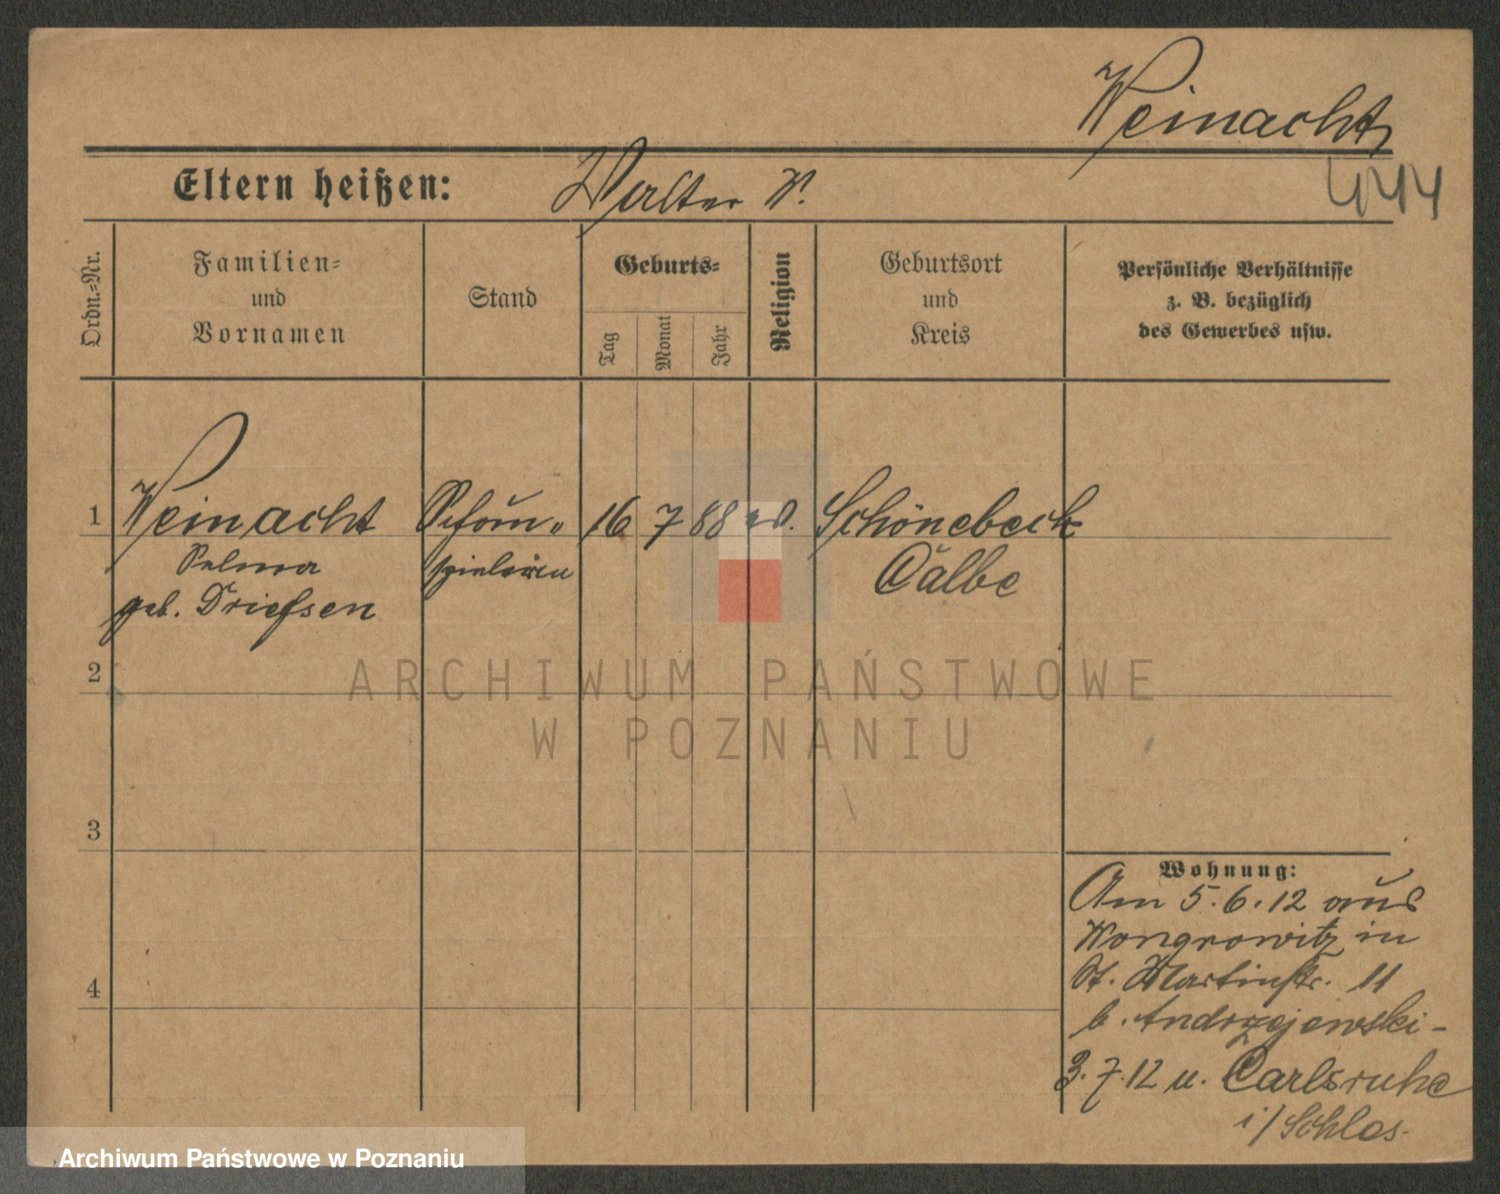 Weinacht
444
Eltern heißen: Walter W.
Ordn.-Nr.
Familien-
und
Vornamen
Stand
Geburts-
Tag
Monat
Jahr
Religion
Geburtsort
und
Kreis
Persönliche Verhältnisse
z. B. bezüglich
des Gewerbes usw.
1 Weinacht Schau- 16 7 88 ev. Schönebeck
Selma spielerin Calbe
geb. Driessen
2
3
4
Wohnung:
Am 5.6.12 aus
Wongrowitz in
St. Martinstr. 11
b. Andrzejewski -
3.7.12 n. Carlsruhe
i/ Schles.
ARCHIWUM PAŃSTWOWE
W POZNANIU
Archiwum Państwowe w Poznaniu